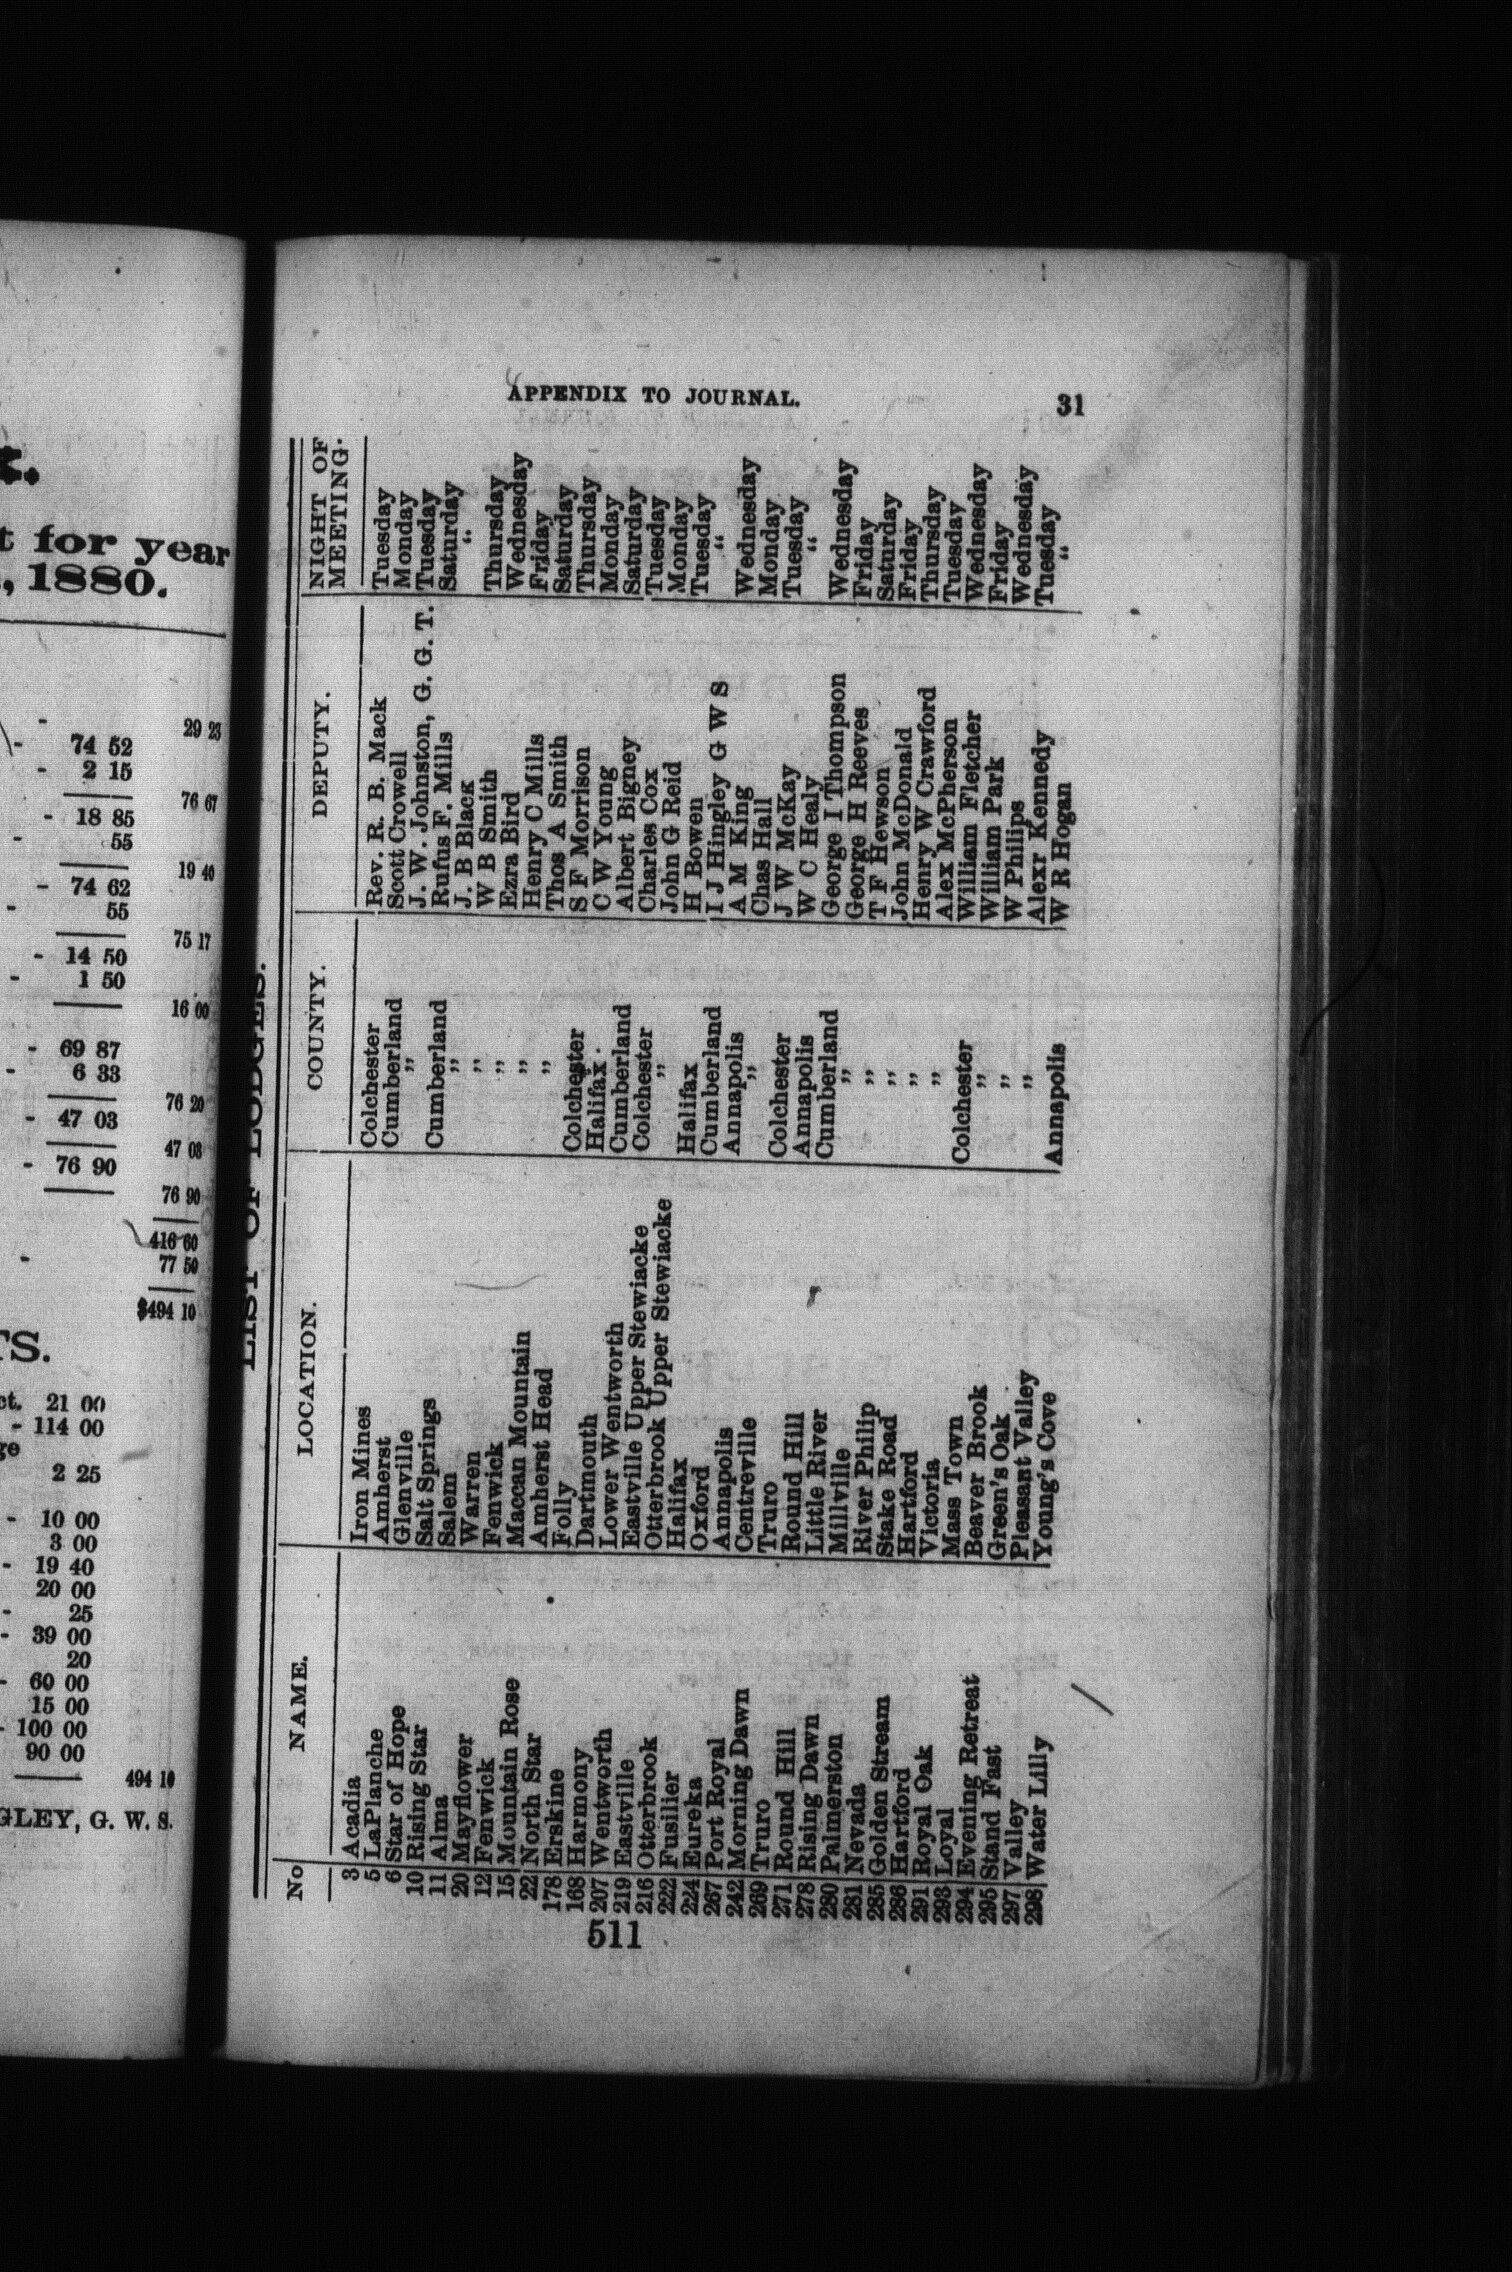 t for year
, 1880.
29 23
- 74 52
- 2 15
76 67
- 18 85
- 55
19 40
- 74 62
- 55
75 17
- 14 50
- 1 50
16 00
- 69 87
- 6 33
76 20
- 47 03
47 03
- 76 90
76 90
416 60
- 77 50
$494 10
TS.
ct. 21 00
- 114 00
ge
2 25
- 10 00
3 00
- 19 40
20 00
- 25
- 39 00
20
- 60 00
15 00
- 100 00
90 00
494 10
GLEY, G. W. S.
APPENDIX TO JOURNAL. 31
LIST OF LODGES.
No NAME. LOCATION. COUNTY. DEPUTY. NIGHT OF MEETING.
3 Acadia Iron Mines Colchester Rev. R. B. Mack Tuesday
5 LaPlanche Amherst Cumberland Scott Crowell Monday
6 Star of Hope Glenville ,, J. W. Johnston, G. G. T. Tuesday
10 Rising Star Salt Springs Cumberland Rufus F. Mills Saturday
11 Alma Salem ,, J. B Black “
20 Mayflower Warren ,, W B Smith Thursday
12 Fenwick Fenwick ,, Ezra Bird Wednesday
15 Mountain Rose Maccan Mountain ,, Henry C Mills Friday
22 North Star Amherst Head ,, Thos A Smith Saturday
178 Erskine Folly Colchester S F Morrison Thursday
168 Harmony Dartmouth Halifax. C W Young Monday
207 Wentworth Lower Wentworth Cumberland Albert Bigney Saturday
219 Eastville Eastville Upper Stewiacke Colchester Charles Cox Tuesday
216 Otterbrook Otterbrook Upper Stewiacke ,, John G Reid Monday
222 Fusilier Halifax Halifax H Bowen Tuesday
224 Eureka Oxford Cumberland I J Hingley G W S “
267 Port Royal Annapolis Annapolis A M King Wednesday
242 Morning Dawn Centreville ,, Chas Hall Monday
269 Truro Truro Colchester J W McKay Tuesday
271 Round Hill Round Hill Annapolis W C Healy “
278 Rising Dawn Little River Cumberland George I Thompson Wednesday
280 Palmerston Millville ,, George H Reeves Friday
281 Nevada River Philip ,, T F Hewson Saturday
285 Golden Stream Stake Road ,, John McDonald Friday
286 Hartford Hartford ,, Henry W Crawford Thursday
291 Royal Oak Victoria ,, Alex McPherson Tuesday
293 Loyal Mass Town Colchester William Fletcher Wednesday
294 Evening Retreat Beaver Brook ,, William Park Friday
295 Stand Fast Green's Oak ,, W Philips Wednesday
297 Valley Pleasant Valley ,, Alexr Kennedy Tuesday
298 Water Lilly Young's Cove Annapolis W R Hogan “
511